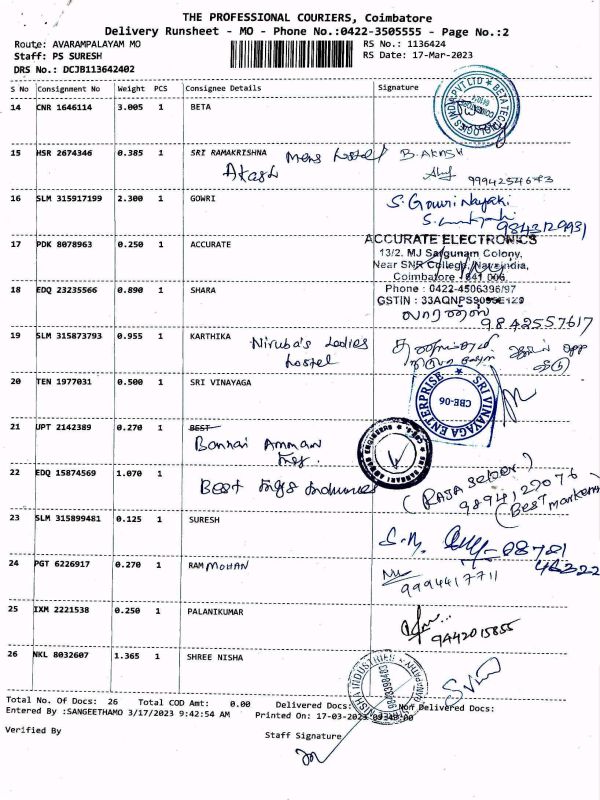 THE PROFESSIONAL COURIERS, Coimbatore
Delivery Runsheet - MO - Phone No.:0422-3505555 - Page No.:2
Route: AVARAMPALAYAM MO
RS No.: 1136424
Staff: PS SURESH
RS Date: 17-Mar-2023
DRS No.: DCJB113642402
S No Consignment No Weight PCS Consignee Details Signature
14 CNR 1646114 3.005 1 BETA
15 HSR 2674346 0.385 1 SRI RAMAKRISHNA Mens hostel B. AKASH
Akash
16 SLM 315917199 2.300 1 GOWRI S. Gowri Nayaki
9843129931
17 PDK 8078963 0.250 1 ACCURATE
ACCURATE ELECTRONICS
13/2. MJ Sargunam Colony,
Near SNR College, Navaindia,
Coimbatore - 641 006.
Phone : 0422-4506396/97
GSTIN : 33AQNPS9095E1Z9
18 EDQ 23235566 0.890 1 SHARA
9842557617
19 SLM 315873793 0.955 1 KARTHIKA Niruba's Ladies
hostel
20 TEN 1977031 0.500 1 SRI VINAYAGA
SRI VINAYAGA ENTERPRISE
CBE-06
21 UPT 2142389 0.270 1 BEST
Bannari Amman
22 EDQ 15874569 1.070 1
Best
9894129076
(Best
23 SLM 315899481 0.125 1 SURESH
24 PGT 6226917 0.270 1 RAM MOHAN
9994417711
25 IXM 2221538 0.250 1 PALANIKUMAR
9442015855
26 NKL 8032607 1.365 1 SHREE NISHA
Total No. Of Docs: 26 Total COD Amt: 0.00 Delivered Docs: Non Delivered Docs:
Entered By :SANGEETHAMO 3/17/2023 9:42:54 AM Printed On: 17-03-2023
Verified By
Staff Signature